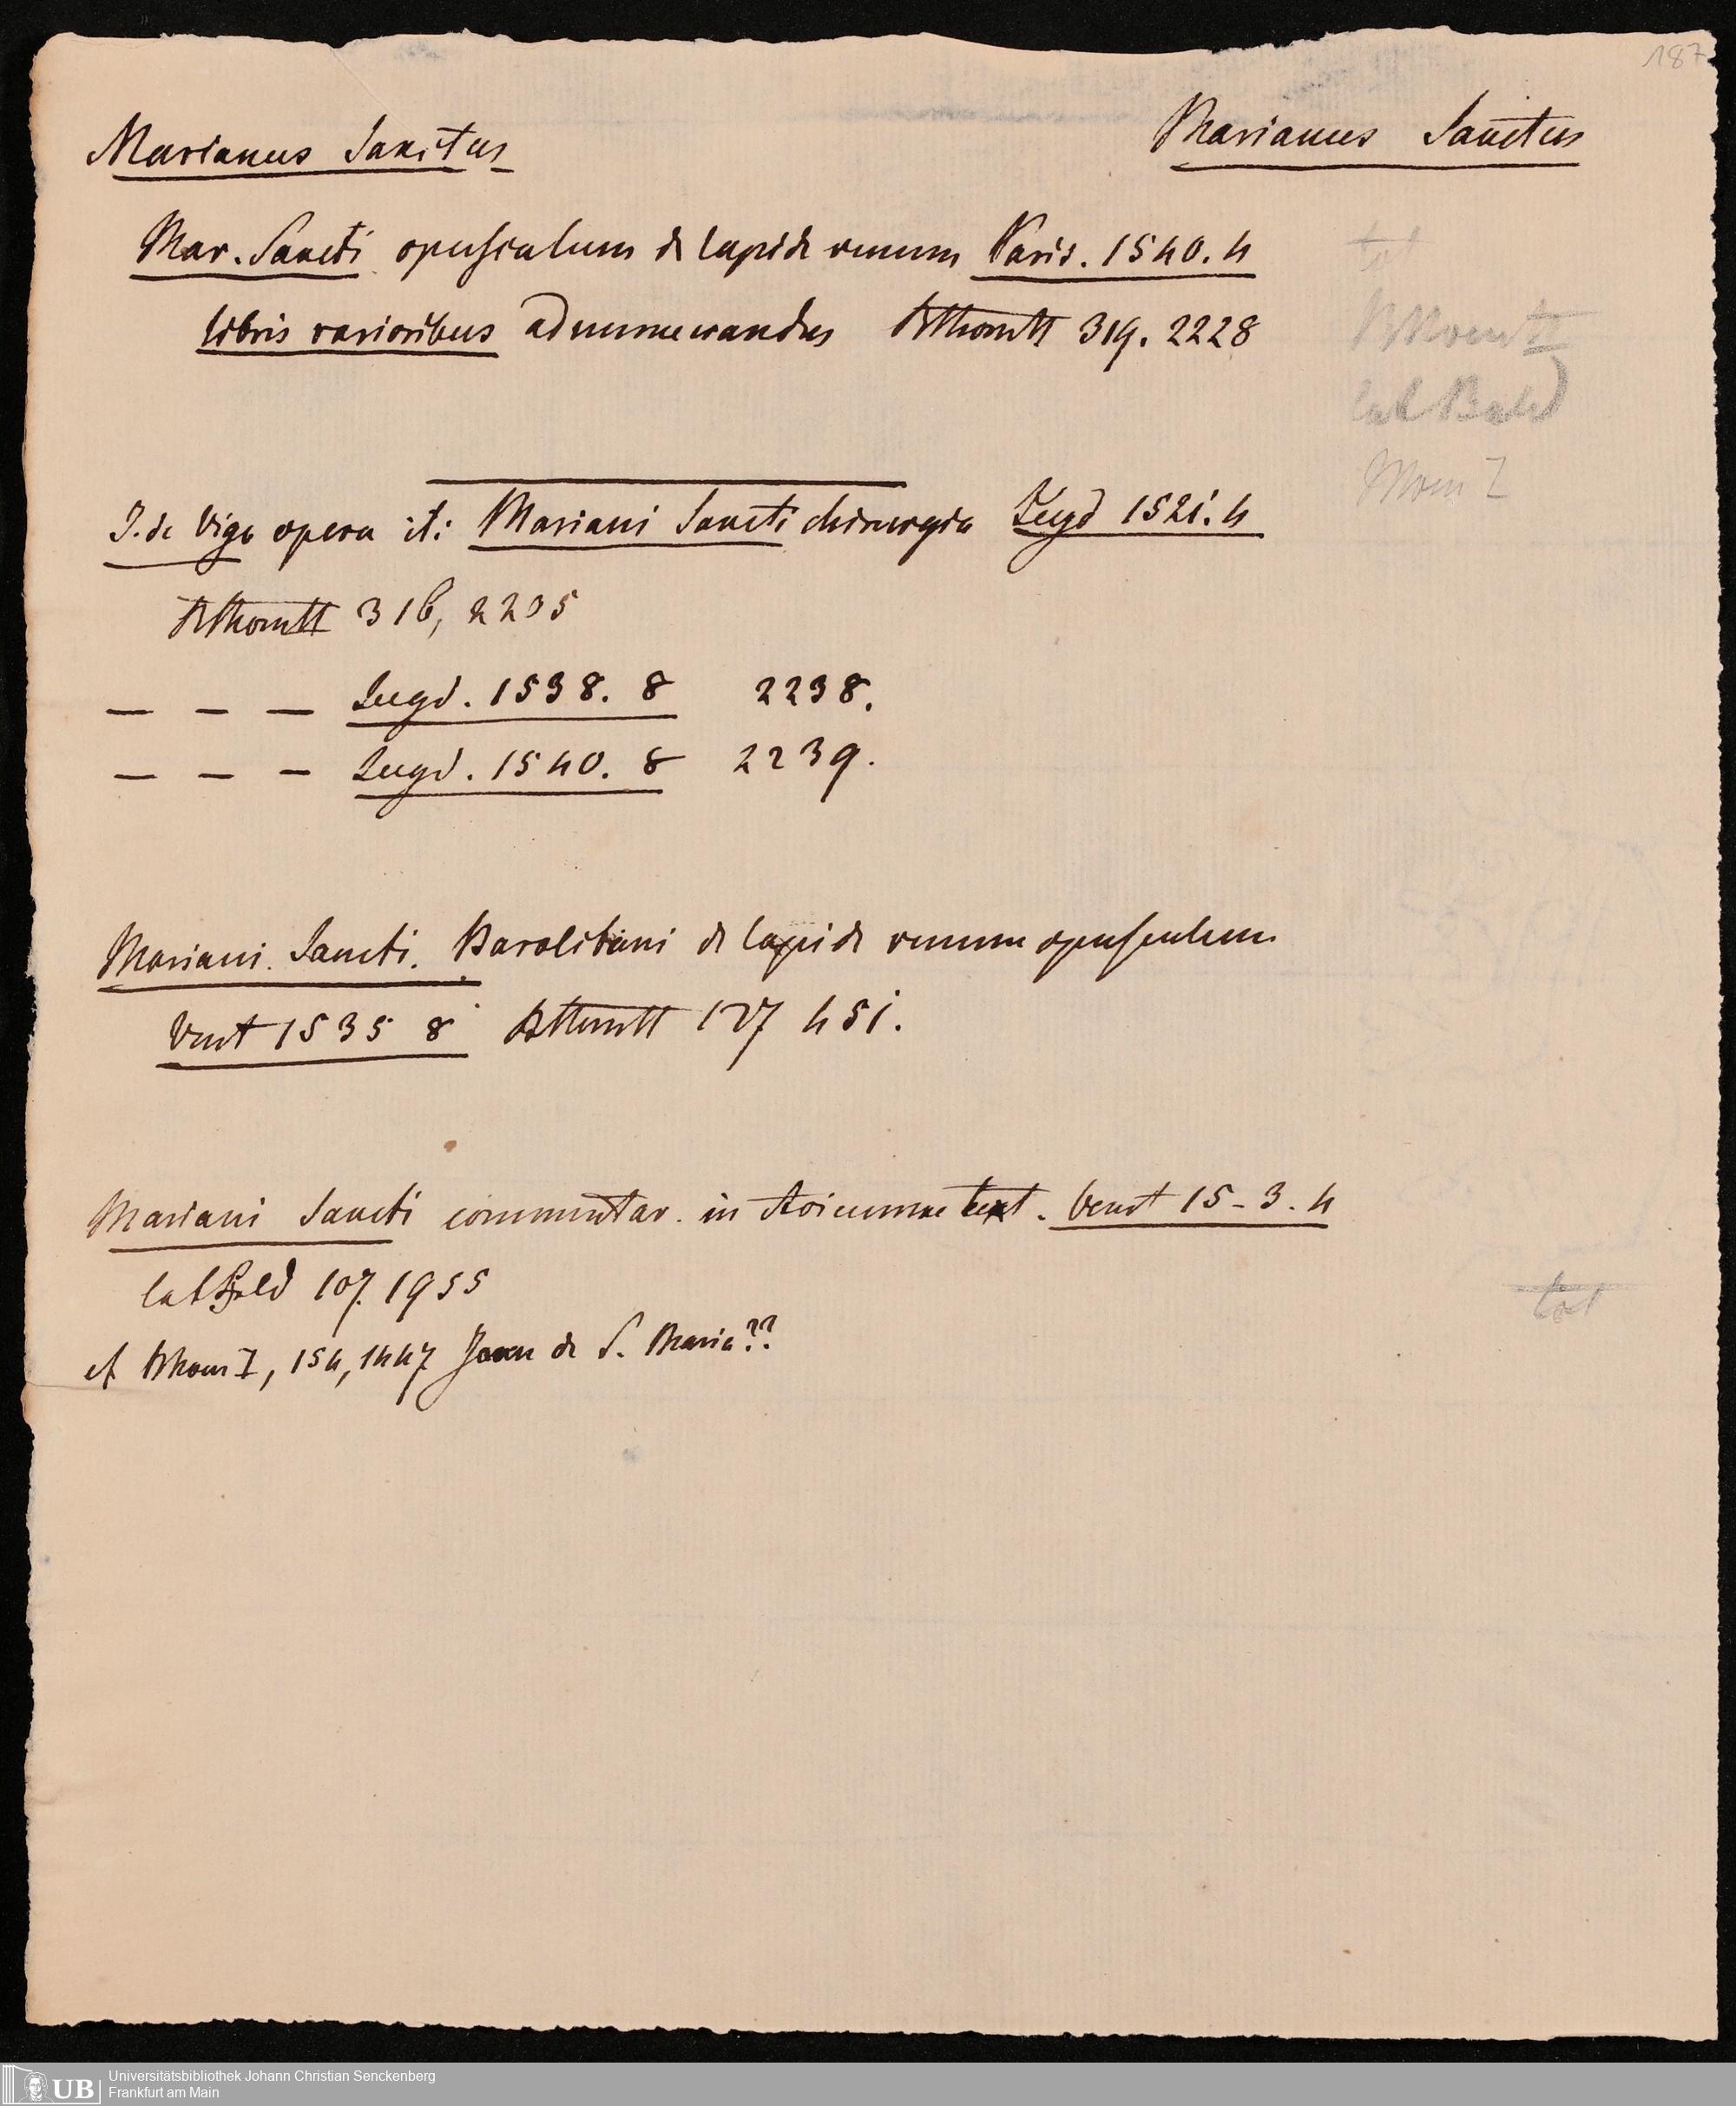 187
Marianus Sanctus
Marianus Sanctus
Mar. Sancti opusculum de lapide renum Paris. 1540. 4
libris rarioribus adnumerandus BThomII 319. 2228
tot
BThomII
lat Bald
Thom I
J. de Vigo opera it: Mariani Sancti chirurgia Lugd 1521. 4
BThomII 316, 2235
— — — Lugd. 1538. 8 2238.
— — — Lugd. 1540. 8 2239.
Mariani Sancti. Barolitani de lapide renum opusculum
Venet 1535 8 BThomII 127 451.
Mariani Sancti commentar. in Avicennae text. Venet 15-3. 4
lat Bald 107. 1955
tot
cf BThom I, 154, 1447 Joan de S. Maria??
UB
Universitätsbibliothek Johann Christian Senckenberg
Frankfurt am Main